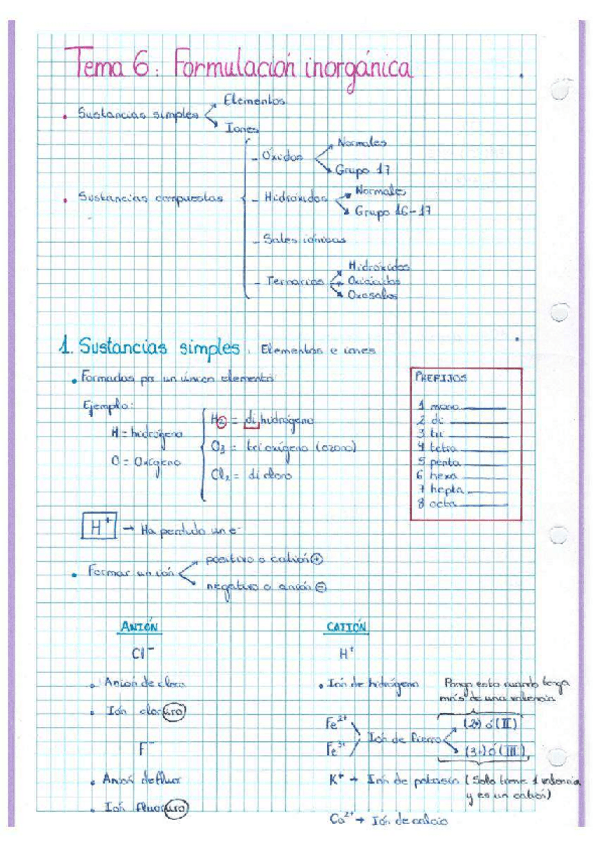 Tema 6: Formulación inorgánica
• Sustancias simples
Elementos
Iones
• Sustancias compuestas
- Óxidos
Normales
Grupo 17
- Hidróxidos
Normales
Grupo 16-17
- Sales iónicas
- Ternarios
Hidróxidos
Oxiácidos
Oxosales
1. Sustancias simples: Elementos e iones
• Formadas por un único elemento
Ejemplo:
H = hidrógeno
O = Oxígeno
H2 = di hidrógeno
O3 = tri oxígeno (ozono)
Cl2 = di cloro
PREFIJOS
1 mono
2 di
3 tri
4 tetra
5 penta
6 hexa
7 hepta
8 octa
H+ → Ha perdido un e-
• Formar un ión
positivo o catión ⊕
negativo o anión ⊖
ANIÓN
Cl-
• Anión de cloro
• Ión cloruro
F-
• Anión de fluor
• Ión fluoruro
CATIÓN
H+
• Ión de hidrógeno
Pongo esto cuando tenga
más de una valencia
Fe2+
Fe3+
Ión de hierro
(2+) ó (II)
(3+) ó (III)
K+ → Ión de potasio (Solo tiene 1 valencia
y es un catión)
Ca2+ → Ión de calcio